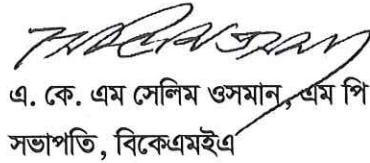 এ. কে. এম সেলিম ওসমান, এম পি
সভাপতি, বিকেএমইএ